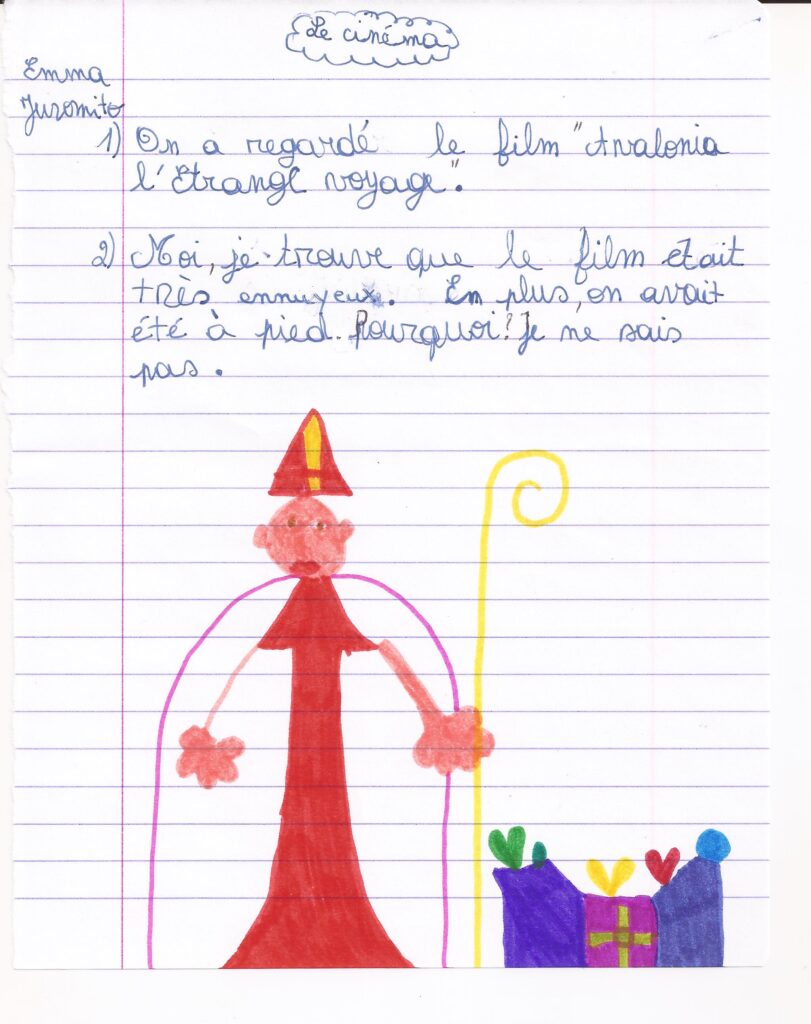 Le cinéma
Emma
Juromito
1) On a regardé le film "Avalonia
l'Etrange voyage".
2) Moi, je trouve que le film etait
très ennuyeux. En plus, on avait
été à pied. Pourquoi? Je ne sais
pas.